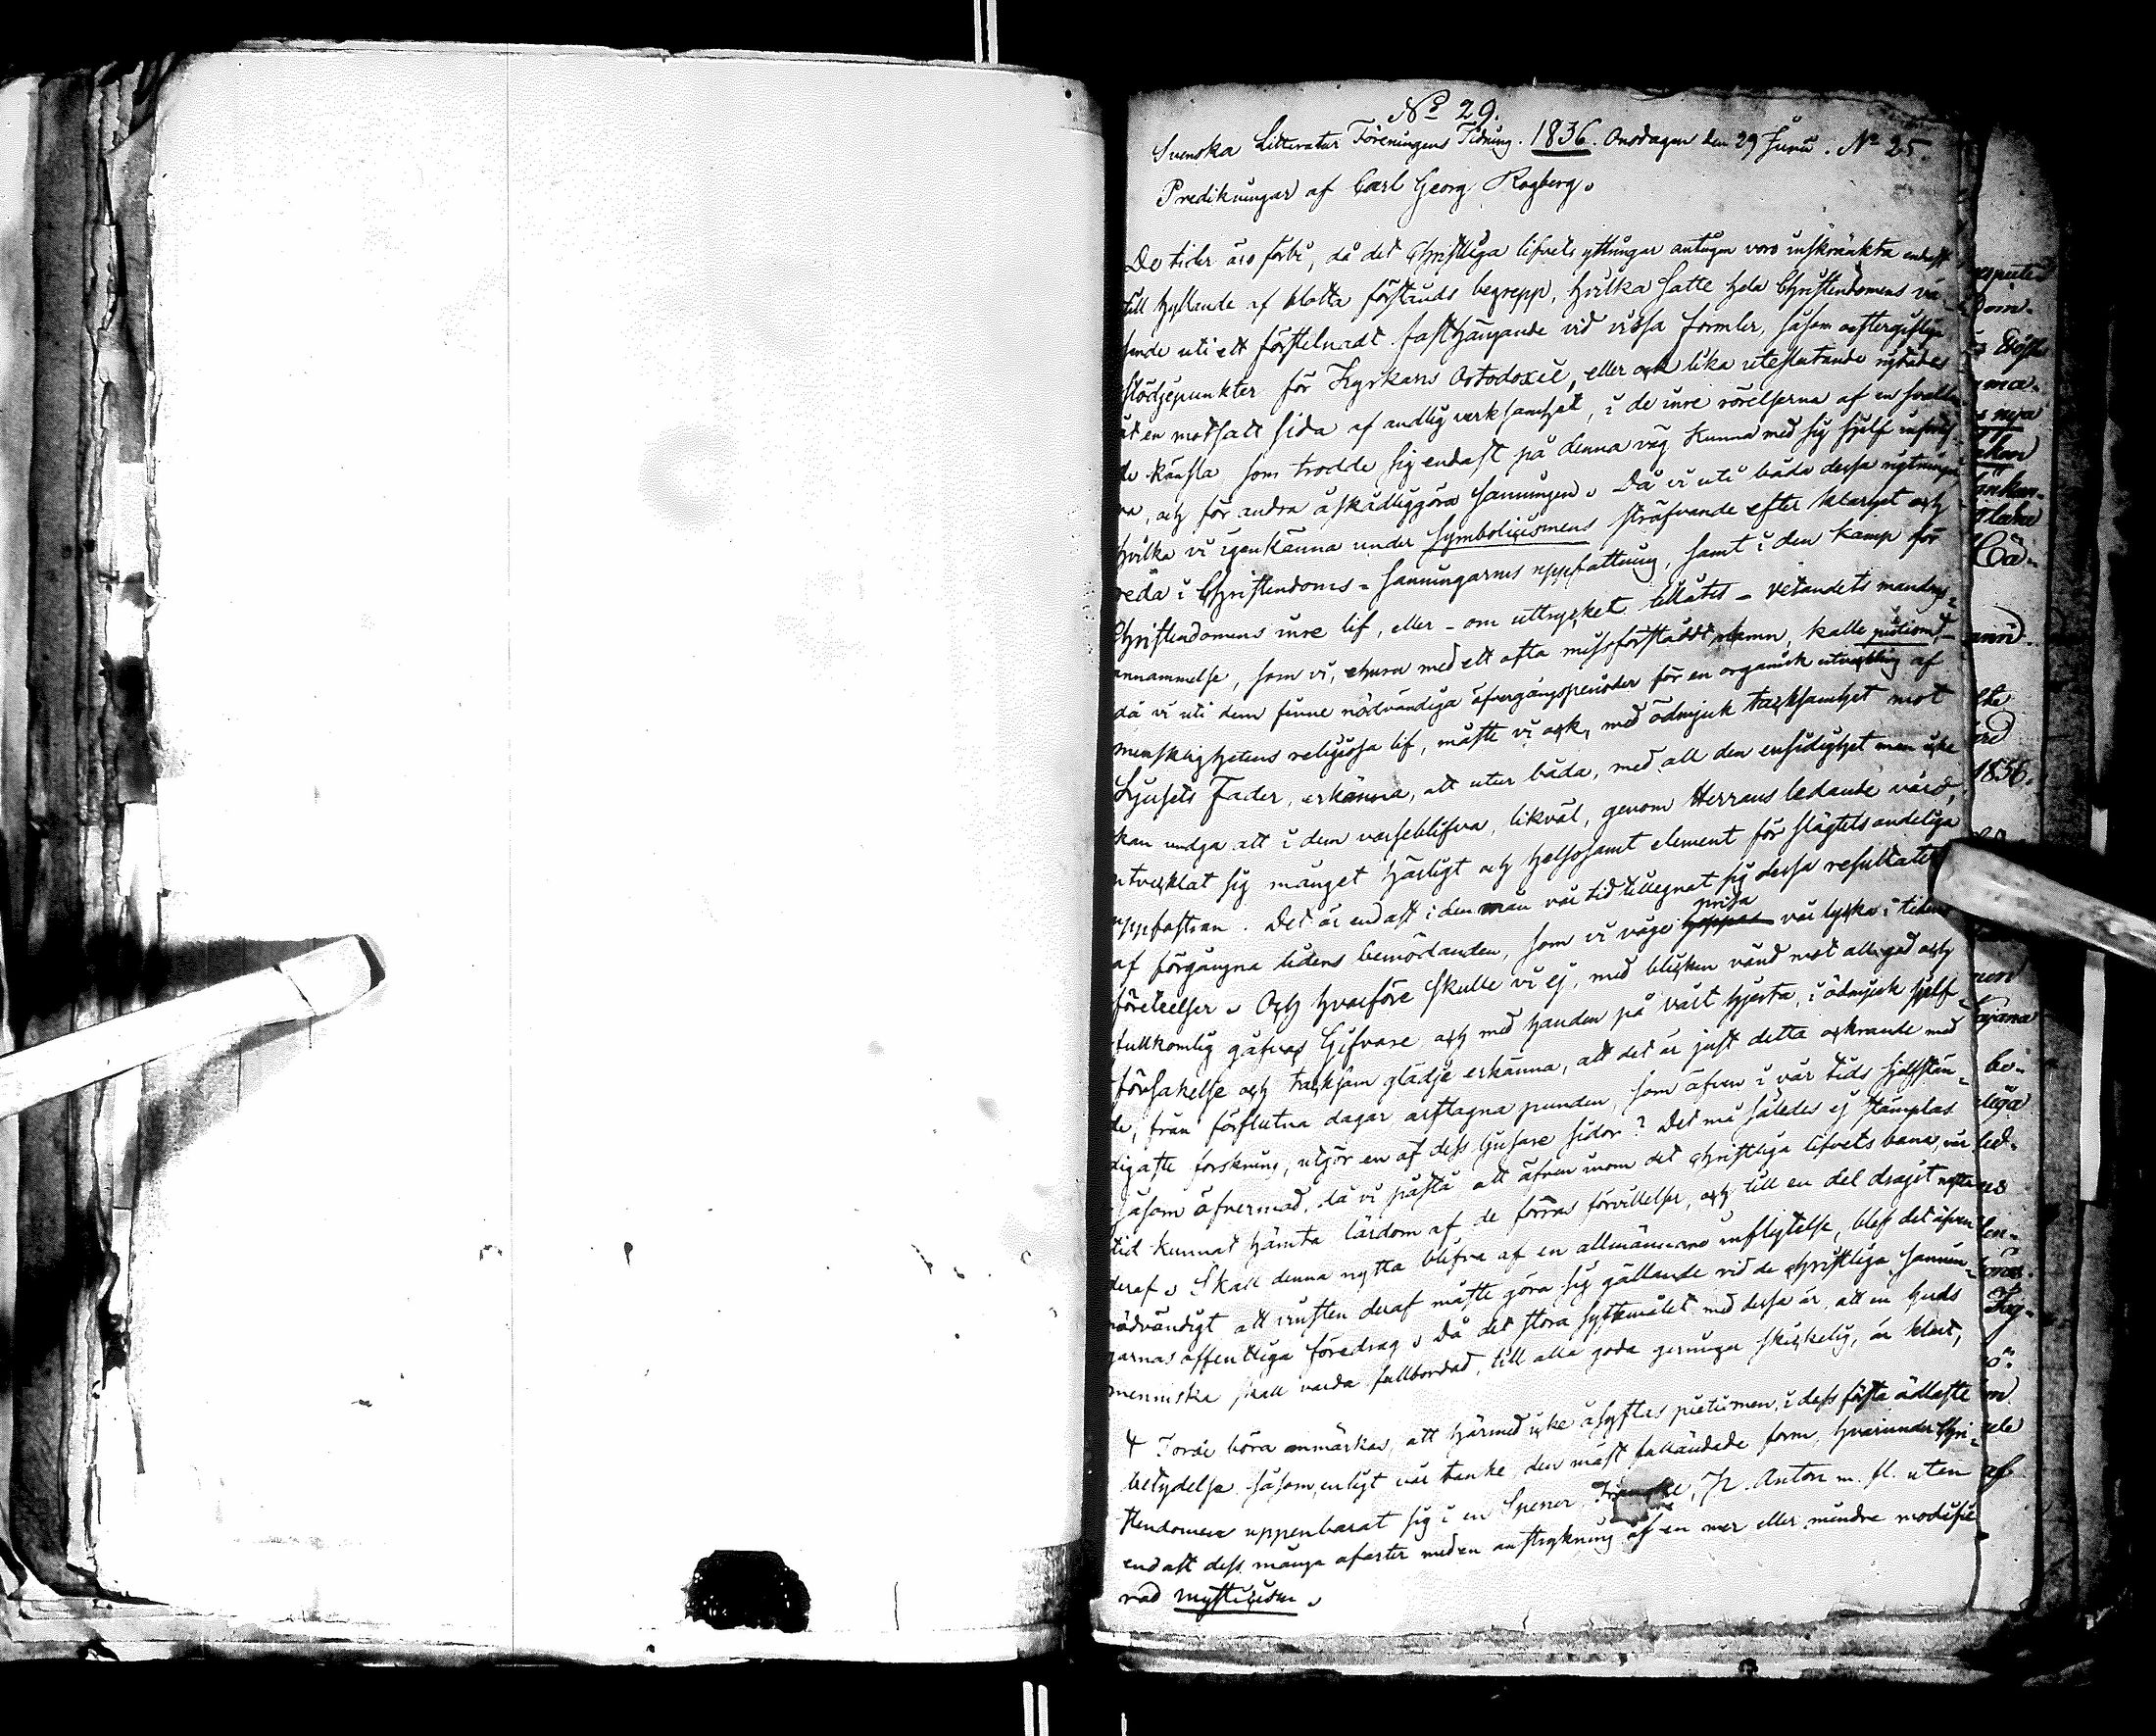 No 29.
Svenska Litteratur Föreningens Tidning. 1836. Onsdagen den 29 Junii. No 25.
Predikningar af Carl Georg Rogberg.
De tider äro förbi, då det Christliga lifvets yttringar antingen voro inskränkta endast
till hyllande af blotta förstånds begrepp, hvilka satte hela Christendomens vä-
sende uti ett förstelnadt fasthängande vid vissa formler, såsom oeftergiflige
stödjepunkter för Kyrkans Ortodoxie, eller ock lika uteslutande
åt en motsatt sida af andlig verksamhet, i de inre rörelserna af en
de känsla som trodde sig endast på denna väg kunna med sig sjelf
ra, och för andra åskådliggöra sanningen. Då vi uti båda dessa rigtningar,
hvilka vi igenkänna under symbolicismens sträfvande efter klarhet och
reda i Christendoms-sanningarnes uppfattning, samt i den kamp för
Christendomens inre lif, eller - om uttrycket tillåtes - vetandets
annammelse, som vi, ehuru med ett ofta missförstådt namn, kalle pietism,
då vi uti dem finne nödvändiga öfvergångsperioder för en organisk utveckling af
mensklighetens religiösa lif, måste vi ock, med ödmjuk tacksamhet mot
Ljusets Fader, erkänna, att utur båda, med all den ensidighet man icke
kan undgå att i dem varseblifva, likväl, genom Herrans ledande vård,
utvecklat sig månget härligt och helsosamt element för slägtets andeliga
uppfostran. Det är endast i den mån vår tid tillegnat sig dessa resultater
af förgångna tidens bemödanden, som vi våge hoppas prisa vår lycka i tidens
företeelser. Och hvarföre skulle vi ej, med blicken vänd mot all god och
fullkomlig gåfvas Gifvare och med handen på vårt hjerta, i ödmjuk sjelf-
försakelse och tacksam glädje erkänna, att det är just detta ockrande med
de, från förflutna dagar, ärftagna punden, som äfven i vår tids sjelfstän-
digaste forskning, utgör en af dess ljusare sidor? Det må således ej stämplas
såsom öfvermod, då vi påstå att äfven inom det christliga lifvets bana, vår
tid kunnat hämta lärdom af de förras förvillelser, och till en del dragit nytta
deraf. Skall denna nytta blifva af en allmännare inflytelse, blef det äfven
nödvändigt att frukten deraf måste göra sig gällande vid de christliga sannin-
garnas offentliga föredrag. Då det stora syftemålet med dessa är, att en Guds
menniska skall varda fullbordad, till alla goda gerningar skickelig, är klart,
Torde böra anmärkas, att härmed icke åsyftas pietismen, i dess första ädlaste
betydelse såsom, enligt vår tanke den mäst fulländade form, hvarunder Chri-
stendomen uppenbarat sig i en Spener, Francke, H. Anton m. fl. utan
endast dess många afarter med en anstrykning af en mer eller mindre modifie
rad mysticism.
1836.